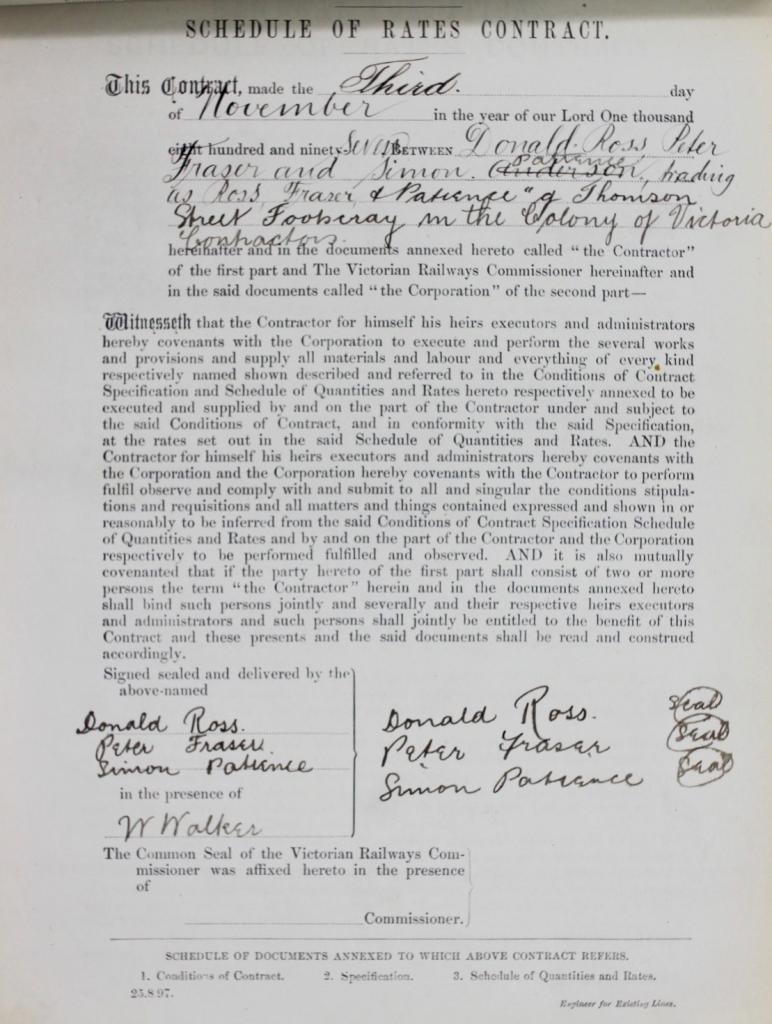 SCHEDULE OF RATES CONTRACT.
This Contract, made the Third. day
of November in the year of our Lord One thousand
eight hundred and ninety-Seven BETWEEN Donald Ross Peter
Fraser and Simon. Anderson Patience, trading
as Ross, Fraser, & Patience" of Thomson
Street Footscray in the Colony of Victoria
Contractors.
hereinafter and in the documents annexed hereto called "the Contractor"
of the first part and The Victorian Railways Commissioner hereinafter and
in the said documents called "the Corporation" of the second part—
Witnesseth that the Contractor for himself his heirs executors and administrators
hereby covenants with the Corporation to execute and perform the several works
and provisions and supply all materials and labour and everything of every kind
respectively named shown described and referred to in the Conditions of Contract
Specification and Schedule of Quantities and Rates hereto respectively annexed to be
executed and supplied by and on the part of the Contractor under and subject to
the said Conditions of Contract, and in conformity with the said Specification,
at the rates set out in the said Schedule of Quantities and Rates. AND the
Contractor for himself his heirs executors and administrators hereby covenants with
the Corporation and the Corporation hereby covenants with the Contractor to perform
fulfil observe and comply with and submit to all and singular the conditions stipula-
tions and requisitions and all matters and things contained expressed and shown in or
reasonably to be inferred from the said Conditions of Contract Specification Schedule
of Quantities and Rates and by and on the part of the Contractor and the Corporation
respectively to be performed fulfilled and observed. AND it is also mutually
covenanted that if the party hereto of the first part shall consist of two or more
persons the term "the Contractor" herein and in the documents annexed hereto
shall bind such persons jointly and severally and their respective heirs executors
and administrators and such persons shall jointly be entitled to the benefit of this
Contract and these presents and the said documents shall be read and construed
accordingly.
Signed sealed and delivered by the
above-named
Donald Ross.
Peter Fraser.
Simon Patience
in the presence of
W Walker
Donald Ross. Seal
Peter Fraser Seal
Simon Patience Seal
The Common Seal of the Victorian Railways Com-
missioner was affixed hereto in the presence
of
Commissioner.
SCHEDULE OF DOCUMENTS ANNEXED TO WHICH ABOVE CONTRACT REFERS.
1. Conditions of Contract. 2. Specification. 3. Schedule of Quantities and Rates.
25.8.97.
Engineer for Existing Lines.